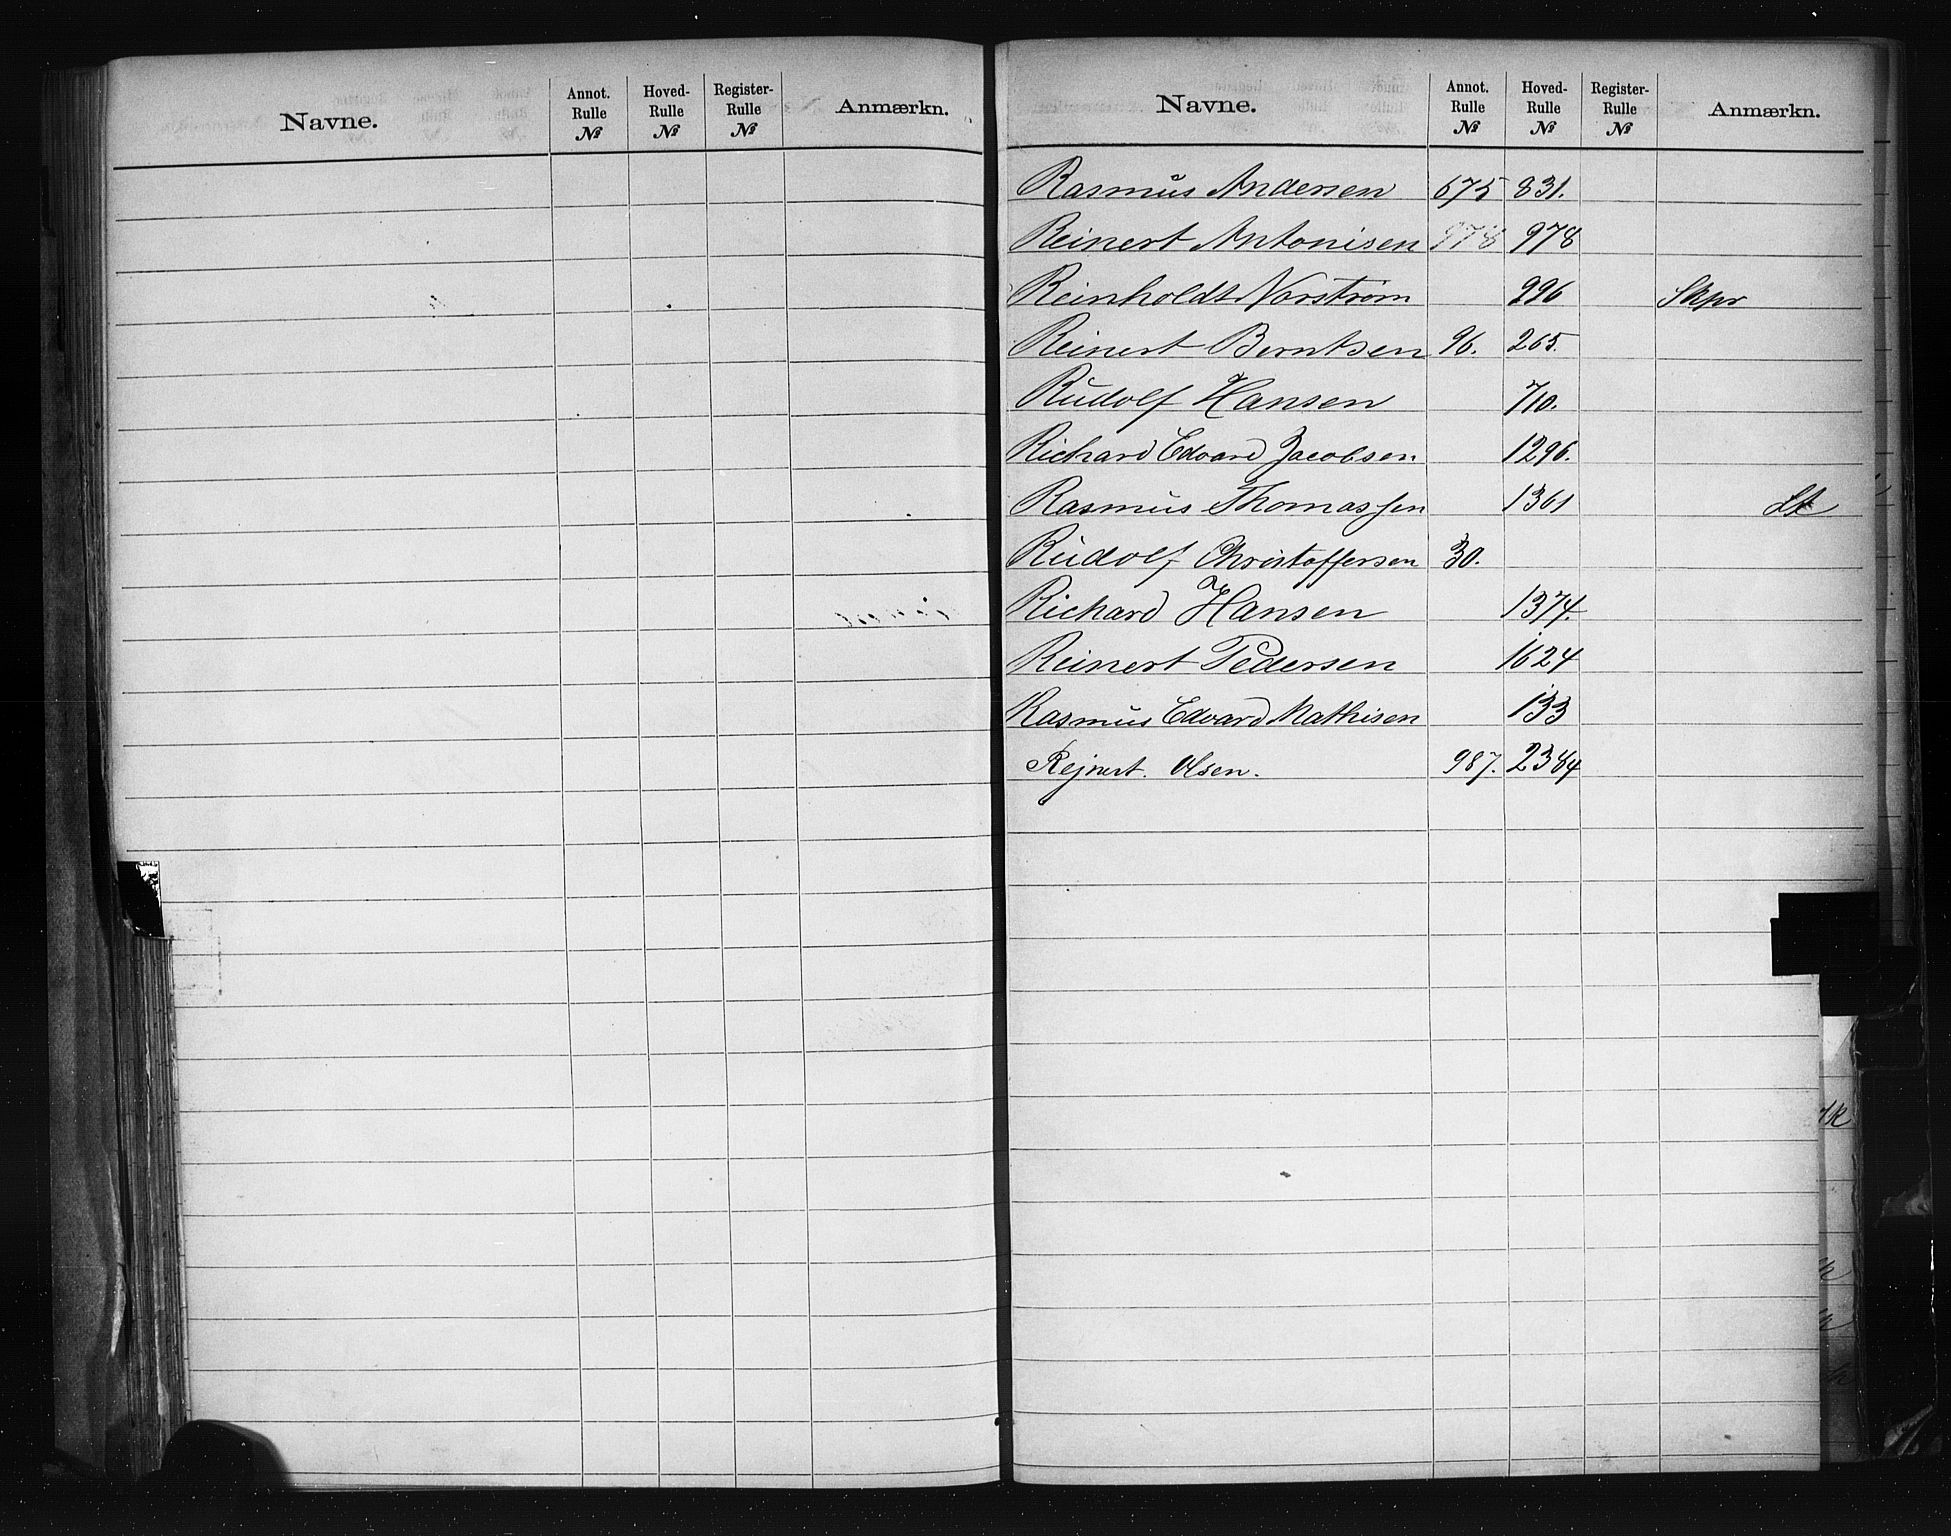 Navne. Annot. Rulle № Hoved-Rulle № Register-Rulle № Anmærkn.
Navne. Annot. Rulle № Hoved-Rulle № Register-Rulle № Anmærkn.
Rasmus Andersen 675 831.
Reinert Antonisen 978 978
Reinholdt Norstrøm 996 Skpr
Reinert Berntsen 96. 265.
Rudolf Hansen 710.
Richard Edvard Jacobsen 1296.
Rasmus Thomassen 1361 Lt
Rudolf Christoffersen 30.
Richard Hansen 1374.
Reinert Pedersen 1624
Rasmus Edvard Mathisen 133
Rejnert. Olsen. 987. 2384